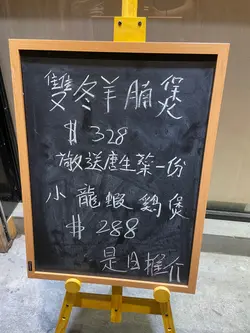 雙冬羊腩煲
$328
敬送唐生菜一份
小龍蝦鷄煲
$288
是日推介